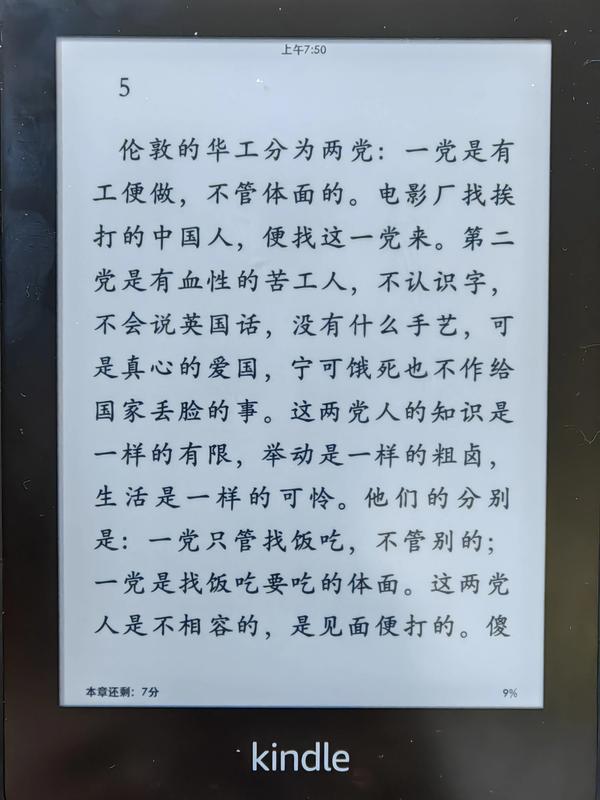 上午7:50
5
伦敦的华工分为两党：一党是有
工便做，不管体面的。电影厂找挨
打的中国人，便找这一党来。第二
党是有血性的苦工人，不认识字，
不会说英国话，没有什么手艺，可
是真心的爱国，宁可饿死也不作给
国家丢脸的事。这两党人的知识是
一样的有限，举动是一样的粗卤，
生活是一样的可怜。他们的分别
是：一党只管找饭吃，不管别的；
一党是找饭吃要吃的体面。这两党
人是不相容的，是见面便打的。傻
本章还剩：7分
9%
kindle